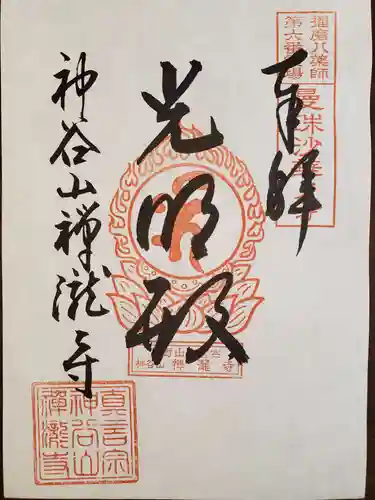 播磨八薬師
第六番霊場
曼珠沙華
奉拝
光明殿
神谷山禅瀧寺
神谷山 禅瀧寺
真言宗
神谷山
禅瀧寺